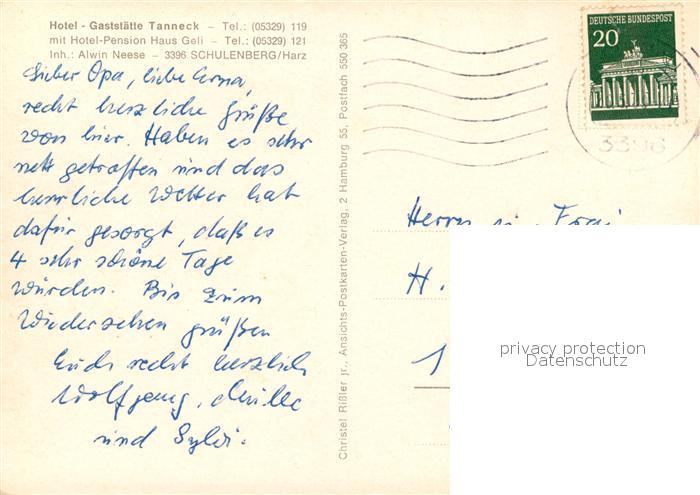 Hotel - Gaststätte Tanneck – Tel.: (05329) 119
mit Hotel-Pension Haus Geli – Tel.: (05329) 121
Inh.: Alwin Neese – 3396 SCHULENBERG/Harz
Lieber Opa, liebe Erna,
recht herzliche Grüße
von hier. Haben es sehr
nett getroffen und das
herrliche Wetter hat
dafür gesorgt, daß es
4 sehr schöne Tage
würden. Bis zum
Wiedersehen grüßen
Euch recht herzlich
Wolfgang,
und Sylvi.
Christel Rißler jr., Ansichts-Postkarten-Verlag, 2 Hamburg 55, Postfach 550 365
DEUTSCHE BUNDESPOST
20
3396
Herrn u. Frau
H.
1
privacy protection
Datenschutz